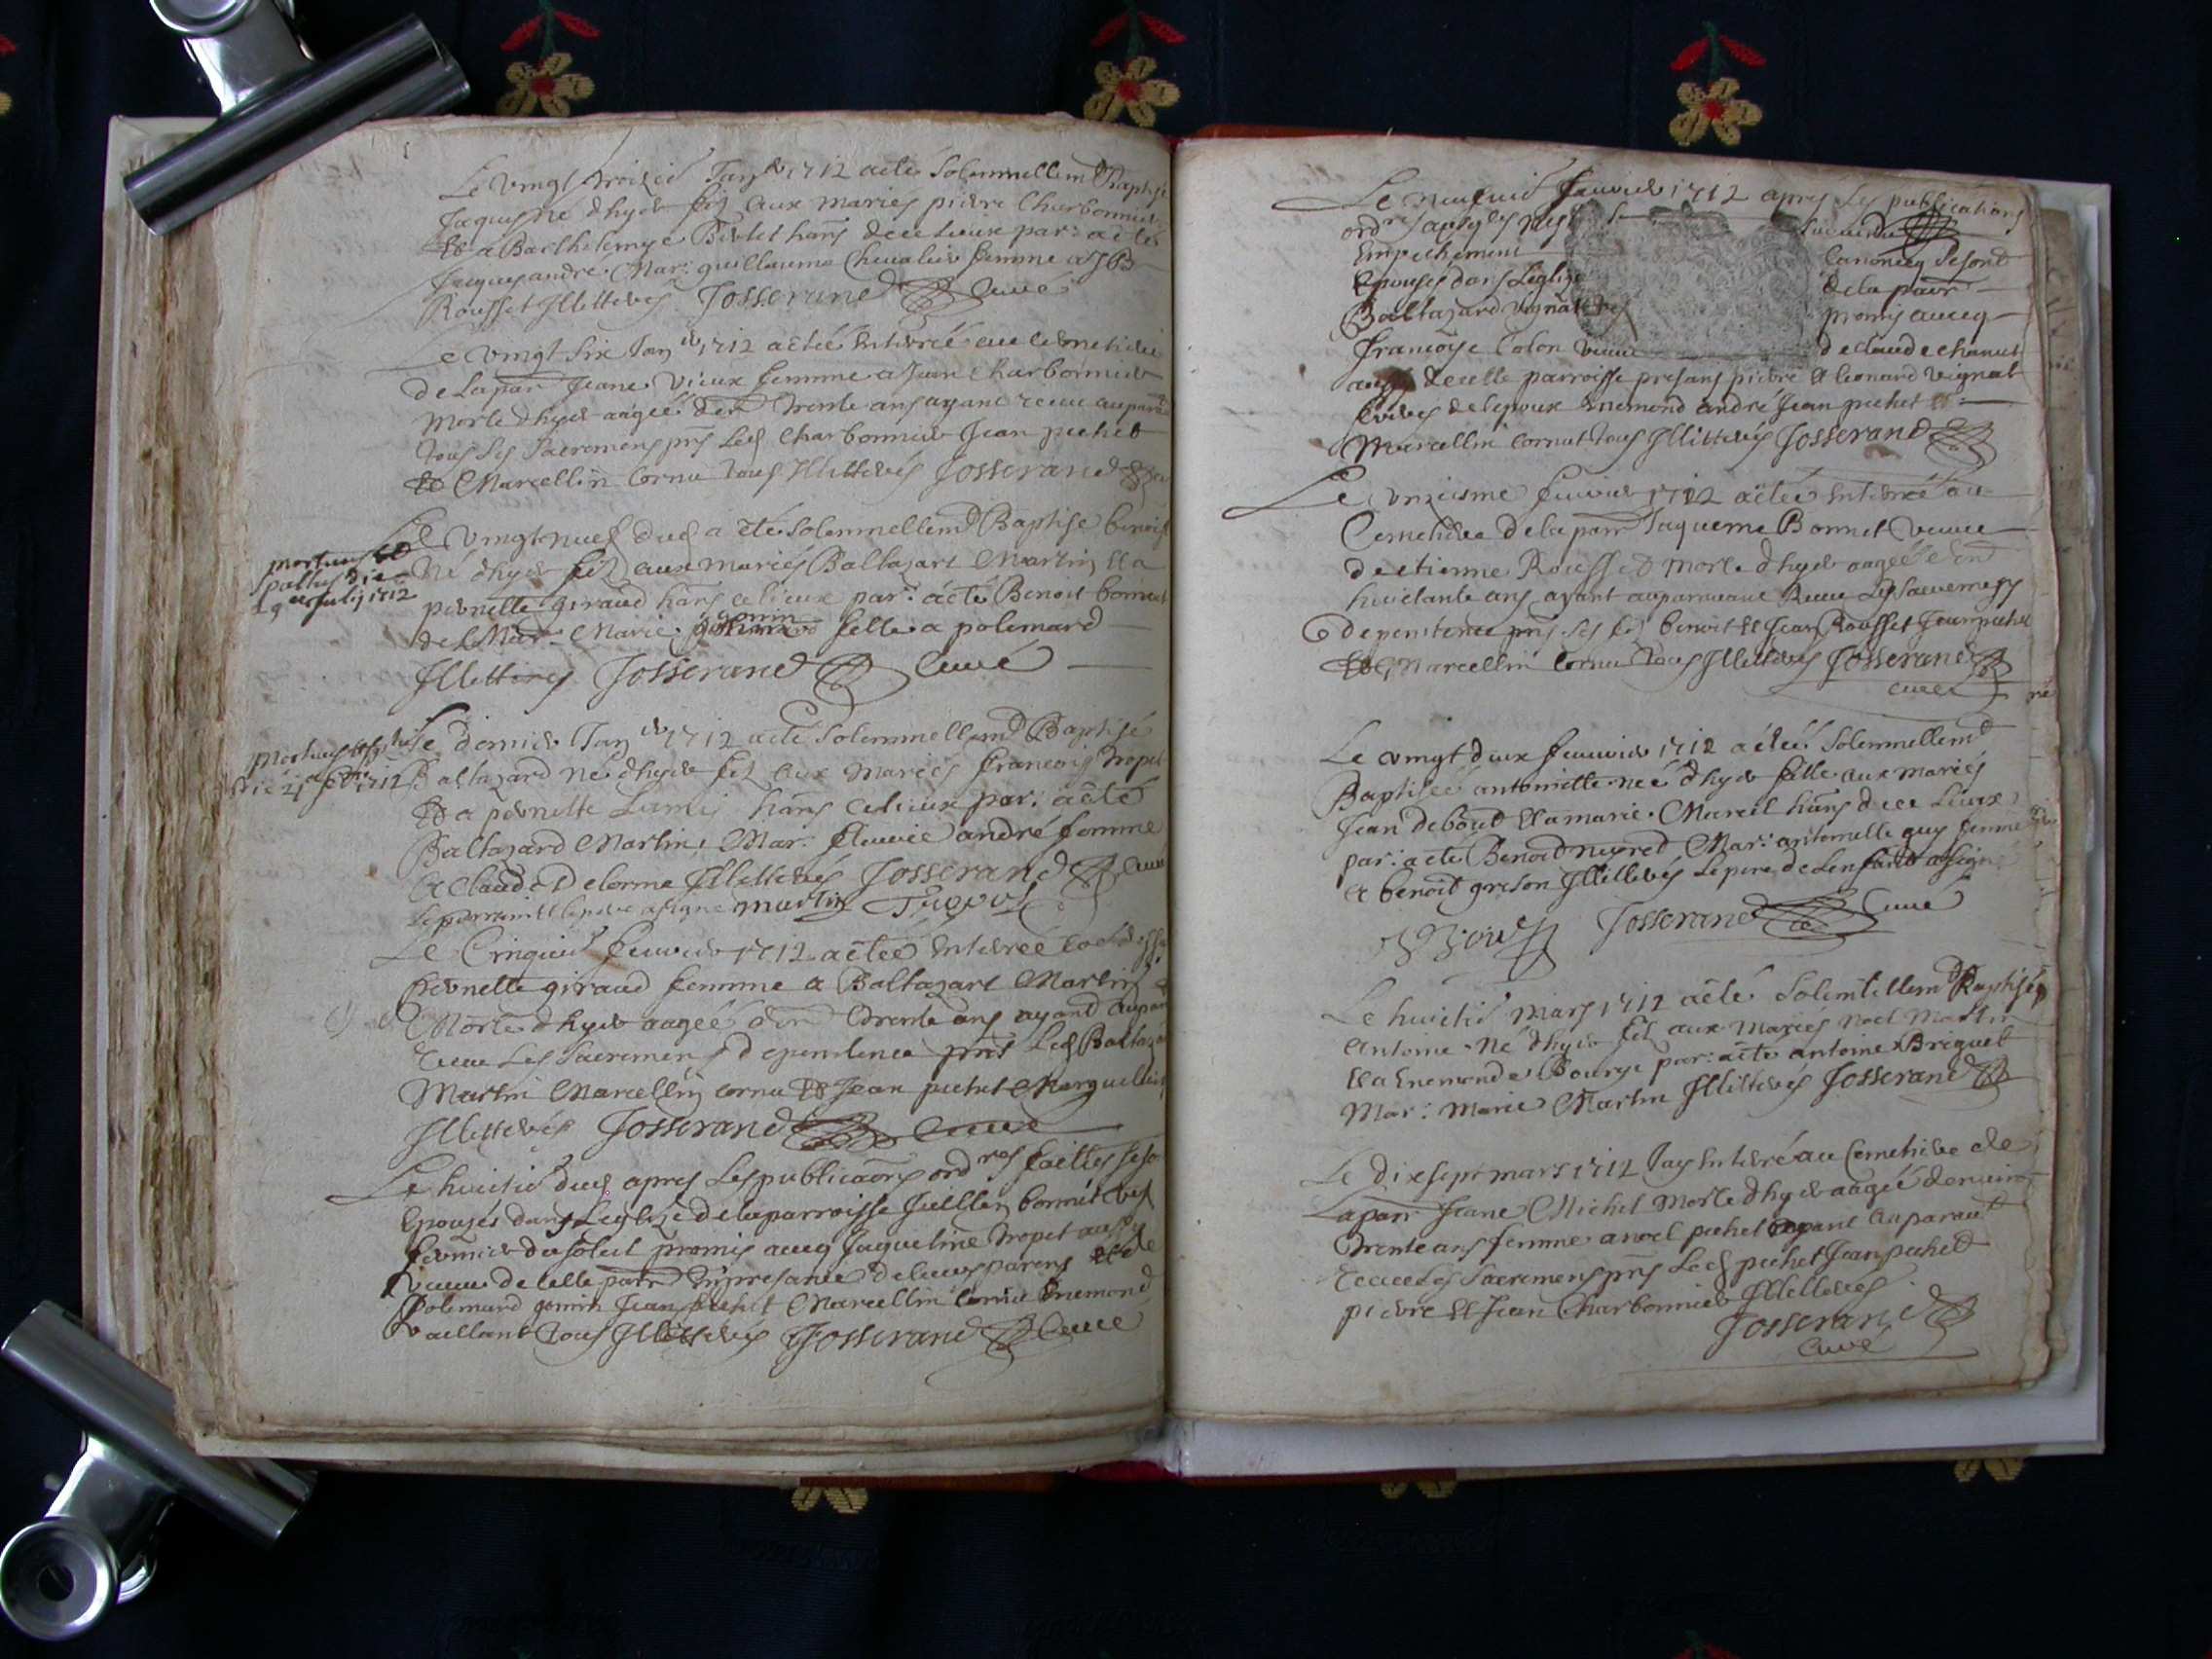 Le vingt troizie Janvr 1712 a eté solemnellemt Baptisé
Jaques né d'hyer fiz aux mariés pierre Charbonnier
et a Barthelemye Berlet hans de ce lieux par: a eté
Jaques andré Mar: guillauma Chevalier femme a
Rousset Illitterés Josserand Curé
Le vingt six Janvr 1712 a eteé enterreé au cemetiere
de la parr Jeane Vieux femme a Jean Charbonnier
Morte d'hyer aageé de trente ans ayant receu auparat
tous les sacremens pnts led Charbonnier Jean pichet
et Marcellin Cornu tous Illitterés Josserand
Le vingt neuf dud a eté solemnellemt Baptisé benoit
né d'hyer fiz aux mariés Baltazart Martin et a
pernette giraud hans ce lieux par: a eté Benoit bonnet
de Mar: Marie gonin fille a polemard
Illitterés Josserand Curé
mortuus et
die
19 Julij 1712
Le dernier Janvr 1712 a eté solemnellemt Baptisé
Baltazard né d'hyer fiz aux mariés françois tropet
et a pernette Lamy hans ce lieux par: a eté
Baltazard Martin Mar: fleurie andré femme
a Claude Delorme Illitterés Josserand Curé
le parrain et le pere a signé martin
mortuus
1712
Le Cinquie fevrier 1712 a eteé enterreé
Pernette giraud femme a Baltazart Martin
Morte d'hyer aageé d'en trente ans ayand
receu les sacremens de penitence pnts led Baltazar
Martin Marcellin cornu et Jean pichet Marguillier
Illitterés Josserand Curé
Le huitie dud apres les publicaons ordres faittes
Epousés dans L'eglize de la parroisse Jullien bonnet
fermier du soleil promis avec Jaqueline tropet aussy
veuve de celle parr en presance de leurs parens et de
Polemard gonin Jean pichet Marcellin cornu enemond
vaillant tous Illitterés Josserand Curé
Le neufvie fevrier 1712 apres les publications
ordres
Empechement Canonicq se sont
Epousés dans L'eglize de la parr
Baltazard vignat promis avecq
françoise Colon veuve de claude chanut
aussy de celle parroisse presans pierre et leonard vignat
freres de l'epoux enemond andré Jean pichet et
Marcellin Cornut tous Illitterés Josserand
Le unzieme fevrier 1712 a eteé enterreé au
Cemetiere de la parr Jaqueme Bonnet veuve
d'etienne Rousset morte d'hyer aageé d'en
huictante ans ayant auparavant Receu les sacremens
de penitence pnts ses fiz benoit et Jean Rousset Jean pichet
et Marcellin Cornu tous Illitterés Josserand
curé
Le vingt deux fevrier 1712 a eteé solemnellemt
Baptiseé antoinette neé d'hyer fille aux mariés
Jean debout et a marie Marcel hans de ce lieux
par: a eté Benoid Mar: antoinette guy femme
a benoit grison Illitterés le pere de l'enfant a signé
Josserand Curé
Le huitie mars 1712 a eté solemnellemt Baptisé
antoine né d'hyer fiz aux mariés noel Martin
et a enemonde Bourge par: a eté antoine Briquet
Mar: Marie Martin Illitterés Josserand
Le dix sept mars 1712 Jay enterré au Cemetiere de
la parr Jeane Michel morte d'hyer aageé d'environ
trente ans femme a noel pichet ayant auparavt
receu les sacremens pnts led pichet Jean pichet
pierre et Jean Charbonnier Illitterés
Josserand
Curé